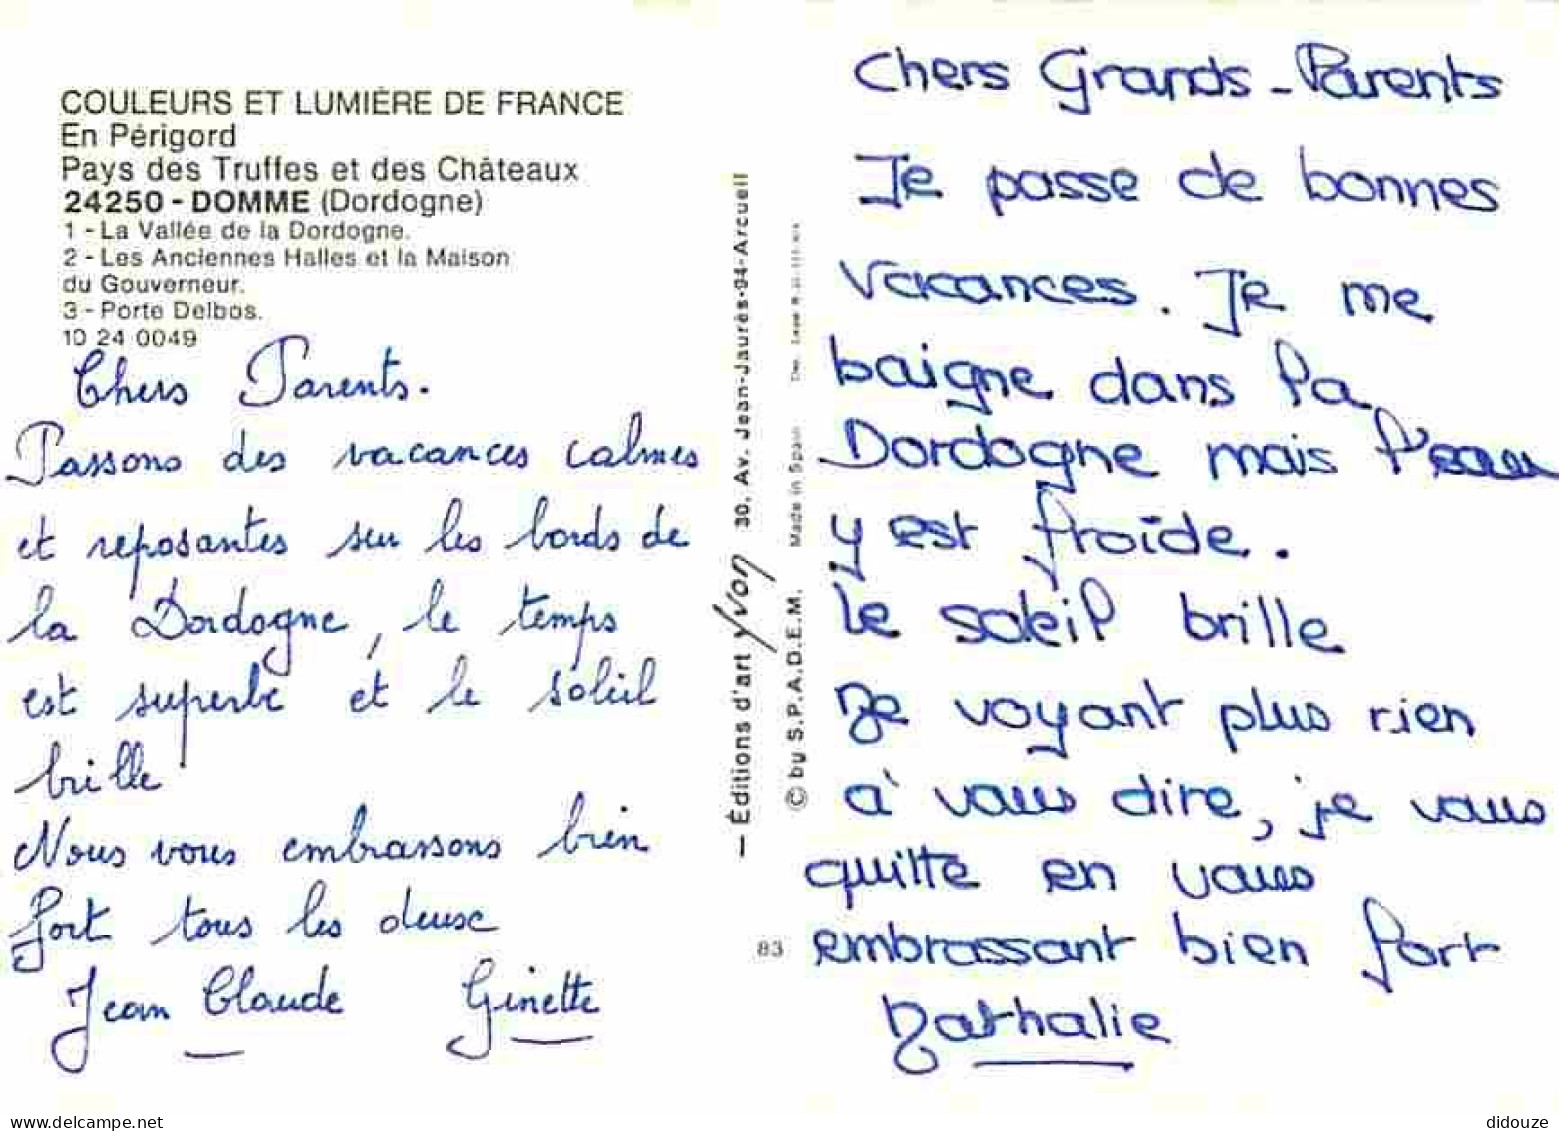 COULEURS ET LUMIÈRE DE FRANCE
En Périgord
Pays des Truffes et des Châteaux
24250 - DOMME (Dordogne)
1 - La Vallée de la Dordogne.
2 - Les Anciennes Halles et la Maison
du Gouverneur.
3 - Porte Delbos.
10 24 0049
Chers Parents.
Passons des vacances calmes
et reposantes sur les bords de
la Dordogne, le temps
est superbe et le soleil
brille
Nous vous embrassons bien
fort tous les deux
Jean Claude Ginette
— Éditions d'art Yvon 30, Av. Jean-Jaurès-94-Arcueil
© by S.P.A.D.E.M. Made in Spain
83
Chers Grands-Parents
Je passe de bonnes
vacances. Je me
baigne dans la
Dordogne mais l'eau
y est froide.
Le soleil brille
Ne voyant plus rien
à vous dire, je vous
quitte en vous
embrassant bien fort
Nathalie
didouze